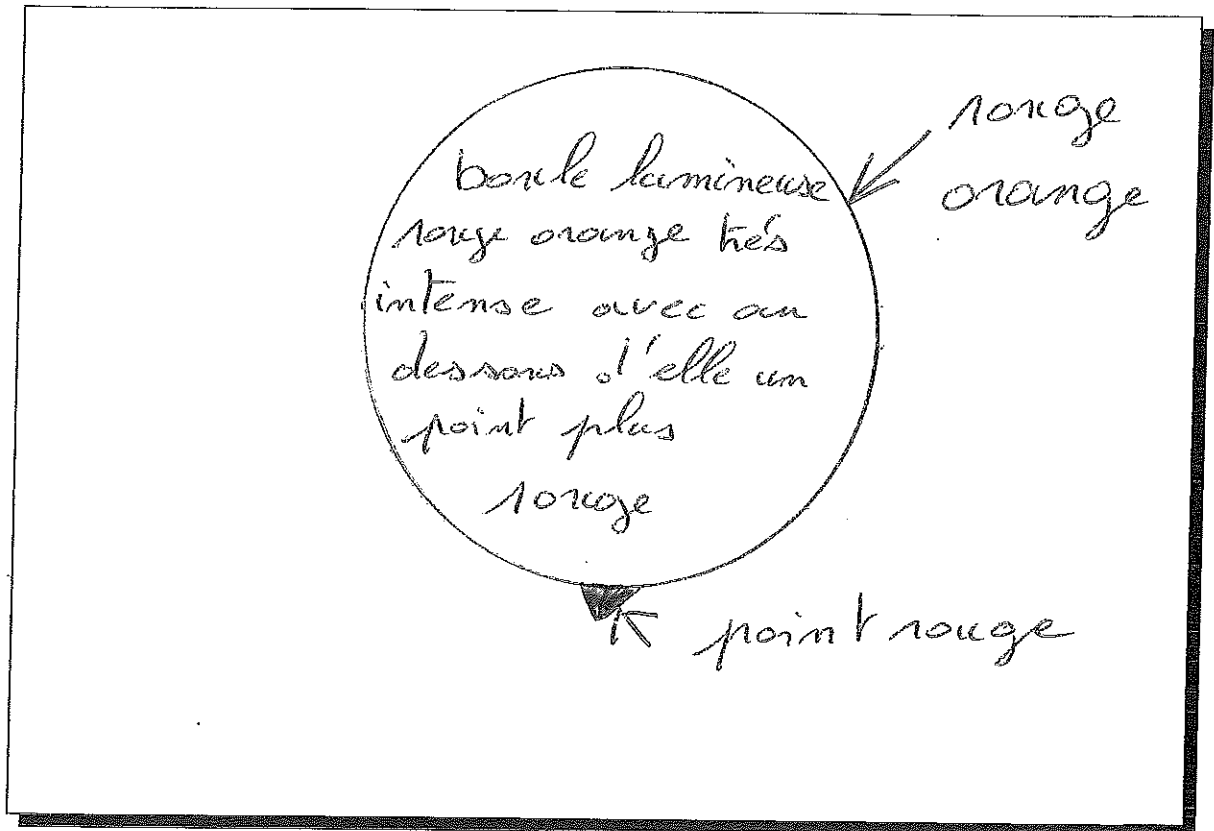 boule lumineuse
rouge orange trés
intense avec au
dessous d'elle un
point plus
rouge
rouge
orange
point rouge